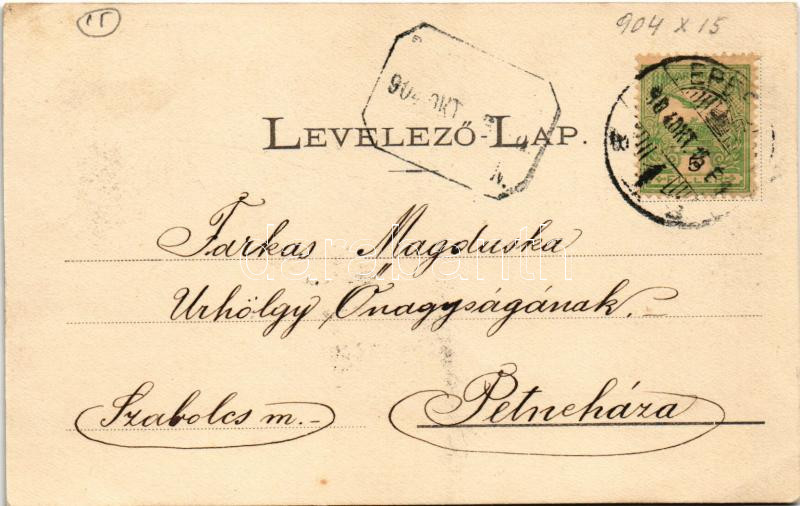 15
904 X 15
904 OKT
N.
EPE
904 OKT 15
LEVELEZŐ-LAP.
Farkas Magduska
Urhölgy Őnagyságának.
Szabolcs m.
Petneháza
darabanth